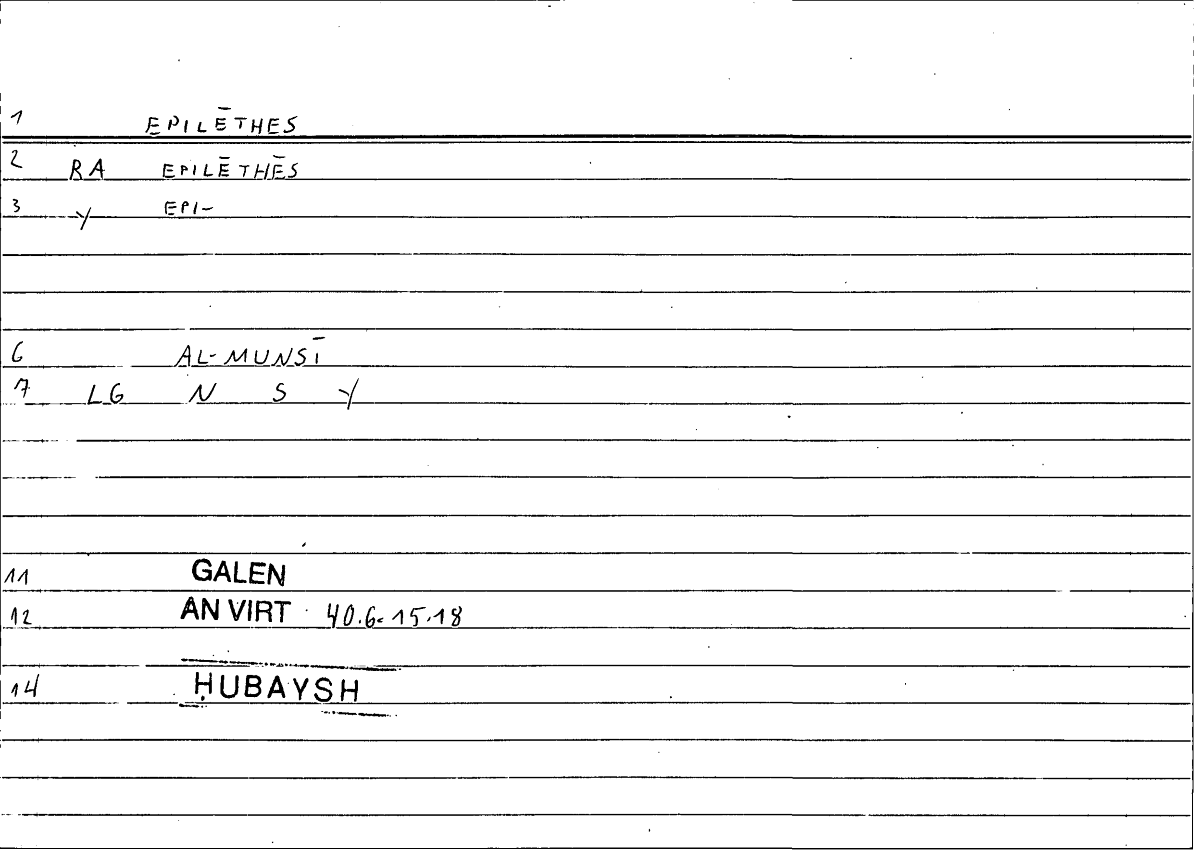 1 EPILĒTHES
2 RA EPILĒTHĒS
3 Y EPI-
6 AL-MUNSĪ
7 LG N S Y
11 GALEN
12 AN VIRT 40.6-15.18
14 ḤUBAYSH